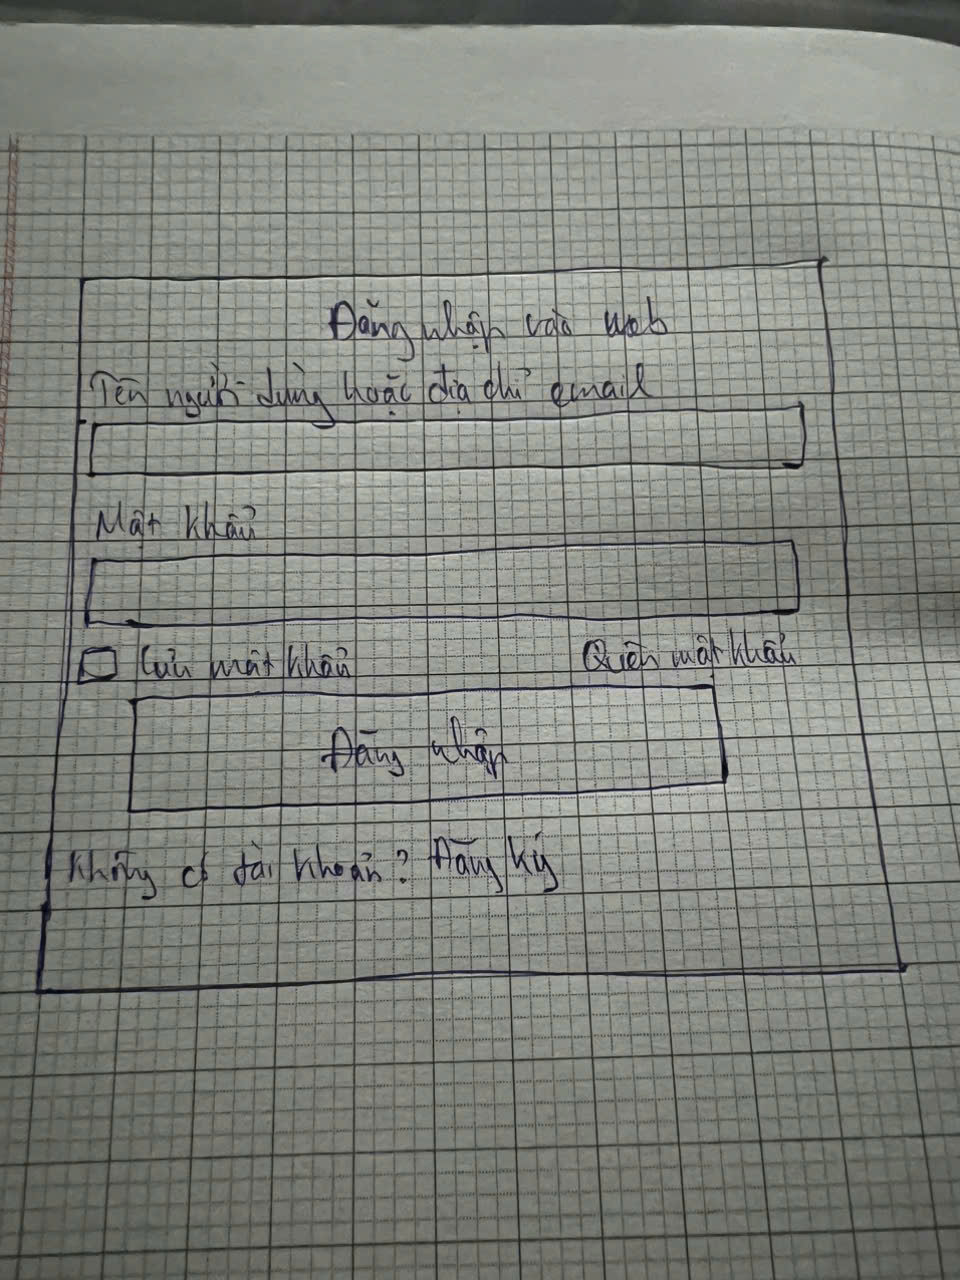 Đăng nhập vào web
Tên người dùng hoặc địa chỉ email
Mật khẩu
Lưu mật khẩu
Quên mật khẩu
Đăng nhập
Không có tài khoản? Đăng ký